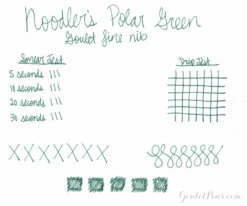 Noodler's Polar Green
Goulet fine nib
Smear Test
Drip Test
5 seconds
10 seconds
20 seconds
30 seconds
XXXXXXX
GouletPens.com